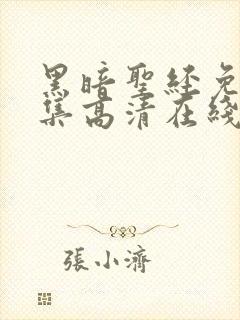 黑暗聖経免
集高清在綫
張小濟